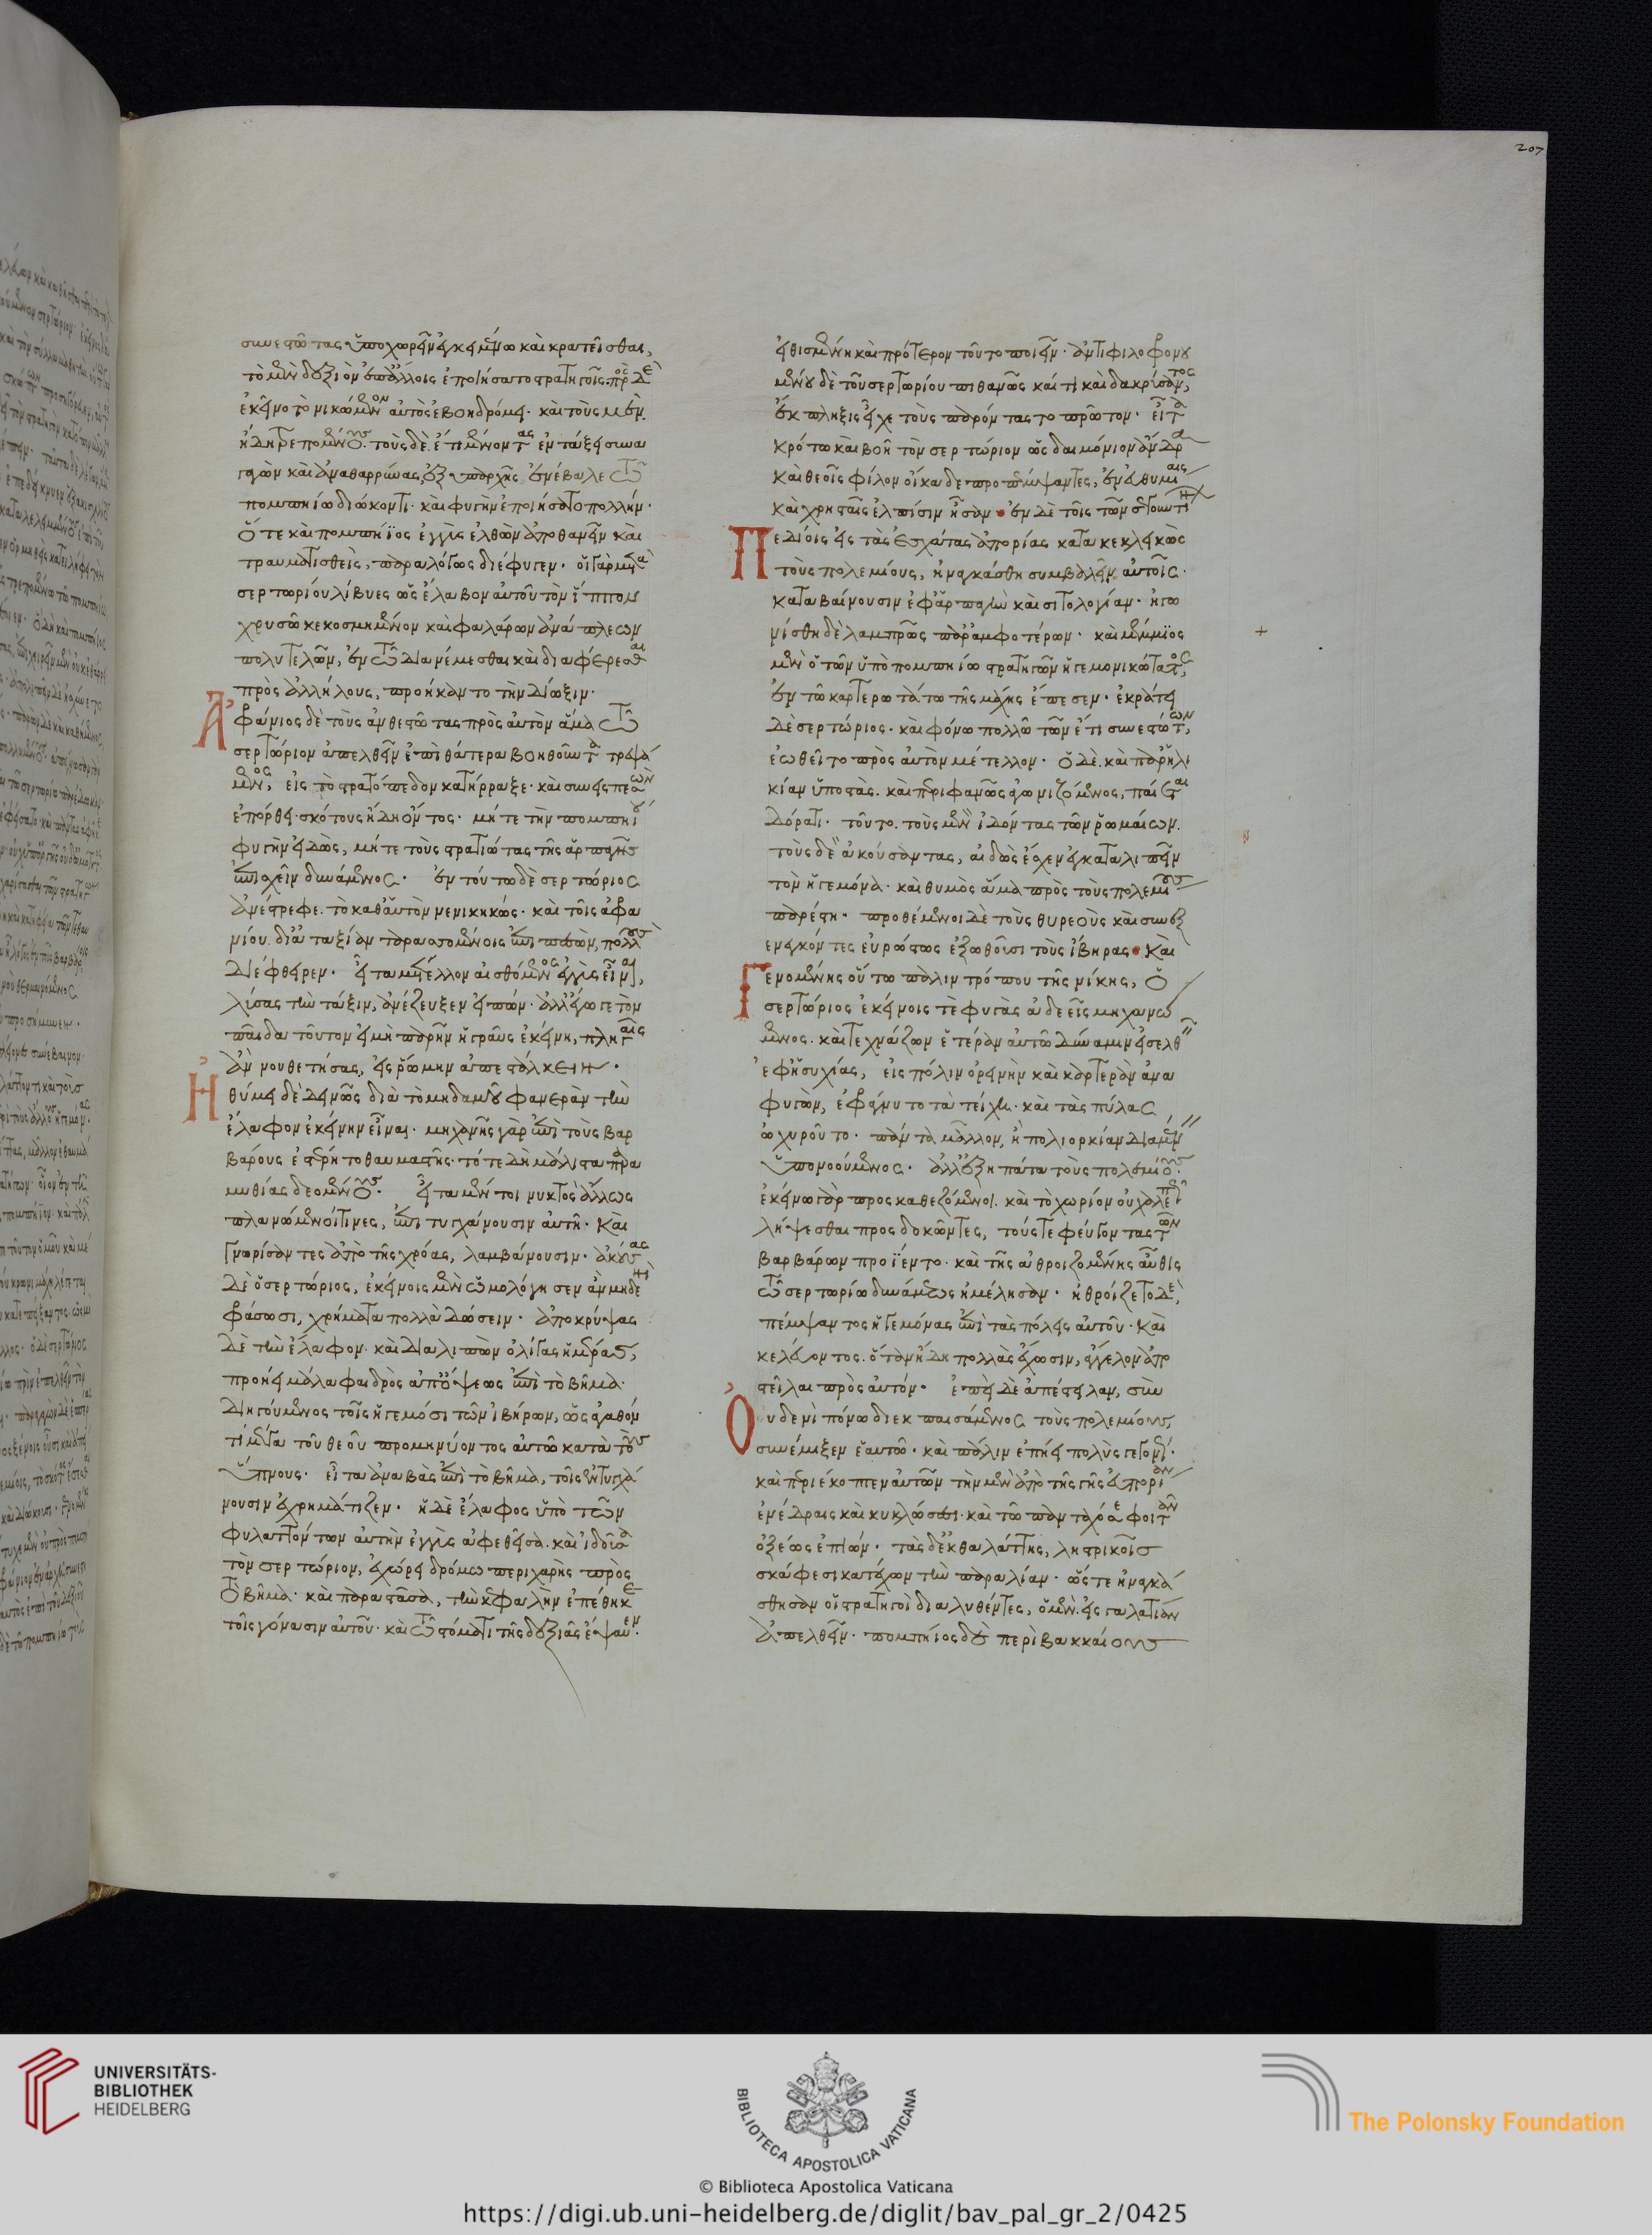 συνεστῶτας ὑποχωρεῖν ἐκείνω καὶ κρατεῖσθαι,
τὸ μὲν δεξιὸν ἐπ' ἄλλοις ἐποιήσατο στρατηγοῖς. πρὸς δὲ
ἐκεῖνο τὸ νικώμενον αὐτὸς ἐβοηδρόμει· καὶ τοὺς μὲν
ἤδη τρεπομένους. τοὺς δὲ. ἔτι μένοντας ἐν τάξει συνα
γαγὼν καὶ ἀναθαρρύνας, ἐξ ὑπαρχῆς ἐνέβαλε τῶ
πομπηίω διώκοντι· καὶ φυγὴν ἐποίησατο πολλήν·
ὅτε καὶ πομπήϊος ἐγγὺς ἐλθὼν ἀποθανεῖν καὶ
τραυματισθεὶς, παραλόγως διέφυγεν· οἱ γὰρ μετὰ
σερτωρίου λίβυες ὡς ἔλαβον αὐτοῦ τὸν ἵππον
χρυσῶ κεκοσμημένον καὶ φαλάρων ἀνάπλεων
πολυτελῶν, ἐν τῶ διανέμεσθαι καὶ διαφέρεσθαι
πρὸς ἀλλήλους, προήκαντο τὴν δίωξιν·
Ἀφράνιος δὲ τοὺς ἀνθεστῶτας πρὸς αὐτὸν ἅμα τῶ
σερτώριον ἀπελθεῖν ἐπὶ θάτερα βοηθοῦντα τρεψά
μενος, εἰς τὸ στρατόπεδον κατήρραξε· καὶ συνεισπεσὼν
ἐπόρθει· σκότους ἤδη ὄντος· μήτε τὴν πομπηίου
φυγὴν εἰδὼς, μήτε τοὺς στρατιώτας τῆς ἁρπαγῆς
ἐπισχεῖν δυνάμενος· ἐν τούτω δὲ σερτώριος
ἀνέστρεφε. τὸ καθ' αὑτὸν νενικηκὼς· καὶ τοῖς ἀφρα
νίου. δι' ἀταξίαν ταρασσομένοις ἐπιπεσὼν, πολλοὺς
διέφθειρεν· εἶτα μέτελλον αἰσθόμενος ἐγγὺς εἶναι,
λύσας τὴν τάξιν, ἀνέζευξεν εἰπών· ἀλλ' ἔγωγε τὸν
παῖδα τοῦτον εἰ μὴ παρῆν ἡ γραῦς ἐκείνη, πληγαῖς
ἂν νουθετήσας, εἰς ῥώμην ἀπεστάλκειν·
Ἠθύμει δὲ δεινῶς διὰ τὸ μηδαμοῦ φανερὰν τὴν
ἔλαφον ἐκείνην εἶναι· μηχανῆς γὰρ ἐπὶ τοὺς βαρ
βάρους ἐστέρητο θαυμαστῆς· τότε δὴ μάλιστα παρα
μυθίας δεομένους· εἶτα μέντοι νυκτὸς ἄλλως
πλανώμενοί τινες, ἐπιτυγχάνουσιν αὐτῆ· καὶ
γνωρίσαντες ἀπὸ τῆς χρόας, λαμβάνουσιν· ἀκούσας
δὲ ὁ σερτώριος, ἐκείνοις μὲν ὡμολόγησεν ἂν μηδενὶ
φράσωσι, χρήματα πολλὰ δώσειν· ἀποκρύψας
δὲ τὴν ἔλαφον· καὶ διαλιπὼν ὀλίγας ἡμέρας,
προήει μάλα φαιδρὸς ἀπὸ ὄψεως ἐπὶ τὸ βῆμα·
διηγούμενος τοῖς ἡγεμόσι τῶν ἰβήρων, ὡς ἀγαθόν
τι μέγα τοῦ θεοῦ προμηνύοντος αὐτῶ κατὰ τοὺς
ὕπνους· εἶτα ἀναβὰς ἐπὶ τὸ βῆμα, τοῖς ἐντυγχά
νουσιν ἐχρημάτιζεν· ἡ δὲ ἔλαφος ὑπὸ τῶν
φυλαττόντων αὐτὴν ἐγγὺς ἀφεθεῖσα· καὶ ἰδοῦσα
τὸν σερτώριον, ἐχώρει δρόμω περιχαρὴς πρὸς
τὸ βῆμα· καὶ παραστᾶσα, τὴν κεφαλὴν ἐπέθηκε
τοῖς γόνασιν αὐτοῦ· καὶ τῶ στόματι τῆς δεξιᾶς ἔψαυεν·
εἰθισμένη καὶ πρότερον τοῦτο ποιεῖν· ἀντιφιλοφρονου
μένου δὲ τοῦ σερτωρίου πιθανῶς καί τι καὶ δακρύσαντος,
ἔκπληξις εἶχε τοὺς παρόντας το πρῶτον· εἶτα
κρότω καὶ βοῆ τὸν σερτώριον ὡς δαιμόνιον ἄνδρα
καὶ θεοῖς φίλον οἴκαδε προπέμψαντες, ἐν εὐθυμίαις
καὶ χρησταῖς ἐλπίσιν ἦσαν· ἐν δὲ τοῖς τῶν σεγουντίνων
Πεδίοις εἰς τὰς ἐσχάτας ἀπορίας κατακεκλεικὼς
τοὺς πολεμίους, ἠναγκάσθη συμβαλεῖν αὐτοῖς·
καταβαίνουσιν ἐφ' ἁρπαγὴν καὶ σιτολογίαν· ἠγω
νίσθη δὲ λαμπρῶς παρ' ἀμφοτέρων· καὶ μέμμιος
μὲν ὁ τῶν ὑπὸ πομπηίω στρατηγῶν ἡγεμονικώτατος,
ἐν τῶ καρτερωτάτω τῆς μάχης ἔπεσεν· ἐκράτει
δὲ σερτώριος· καὶ φόνω πολλῶ τῶν ἔτι συνεστώτων,
ἐωθεῖτο πρὸς αὐτὸν μέτελλον· ὁ δὲ. καὶ παρ' ἡλι
κίαν ὑποστὰς. καὶ περιφανῶς ἀγωνιζόμενος, παίεται
δόρατι· τοῦτο. τοὺς μὲν ἰδόντας τῶν ῥωμαίων.
τοὺς δὲ ἀκούσαντας, αἰδὼς ἔσχεν ἐγκαταλιπεῖν
τὸν ἡγεμόνα· καὶ θυμὸς ἅμα πρὸς τοὺς πολεμίους
παρέστη· προθέμενοι δὲ τοὺς θυρεοὺς καὶ συνεξ
ενεγκόντες εὐρώστως ἐξωθοῦσι τοὺς ἴβηρας· καὶ
Γενομένης οὕτω παλιντρόπου τῆς νίκης, ὁ
σερτώριος ἐκείνοις τὲ φυγὰς ἀδεεῖς μηχανώ
μενος. καὶ τεχνάζων ἑτέραν αὐτῶ δύναμιν συνελθεῖν
ἐφ' ἡσυχίας, εἰς πόλιν ὀρεινὴν καὶ καρτερὰν ἀνα
φυγὼν, ἐφράγνυτο τὰ τείχη· καὶ τὰς πύλας
ὠχυροῦτο· πάντα μᾶλλον, ἢ πολιορκίαν διαμένειν
ὑπονοούμενος· ἀλλ' ἐξηπάτα τοὺς πολεμίους·
ἐκείνω γὰρ προσκαθεζόμενοι. καὶ τὸ χωρίον οὐ χαλεπῶς
λήψεσθαι προσδοκῶντες, τούς τε φεύγοντας τῶν
βαρβάρων προΐεντο· καὶ τῆς ἀθροιζομένης αὖθις
τῶ σερτωρίω δυνάμεως ἠμέλησαν· ἠθροίζετο δὲ,
πέμψαντος ἡγεμόνας ἐπὶ τὰς πόλεις αὐτοῦ· καὶ
κελεύοντος. ὅταν ἤδη πολλοὺς ἔχωσιν, ἄγγελον ἀπο
στεῖλαι πρὸς αὐτόν· ἐπεὶ δὲ ἀπέστειλαν, σὺν
Οὐδενὶ πόνω διεκπαισάμενος τοὺς πολεμίους
συνέμιξεν ἑαυτῶ· καὶ πάλιν ἐπήει πολὺς γεγονὼς·
καὶ περιέκοπτεν αὐτῶν τὴν μὲν ἀπὸ τῆς γῆς εὐπορίαν
ἐνέδραις καὶ κυκλώσεσι· καὶ τῶ πανταχόσε φοιτᾶν
ὀξέως ἐπιών· τὰς δ' ἐκ θαλάττης, ληστρικοῖς
σκάφεσι κατέχων τὴν παραλίαν· ὥστε ἠναγκά
σθησαν οἱ στρατηγοὶ διαλυθέντες, ὁ μὲν. εἰς γαλατίαν
ἀπελθεῖν· πομπήϊος δὲ περὶ βακκαίους
207
UNIVERSITÄTS-
BIBLIOTHEK
HEIDELBERG
BIBLIOTECA APOSTOLICA VATICANA
© Biblioteca Apostolica Vaticana
The Polonsky Foundation
https://digi.ub.uni-heidelberg.de/diglit/bav_pal_gr_2/0425